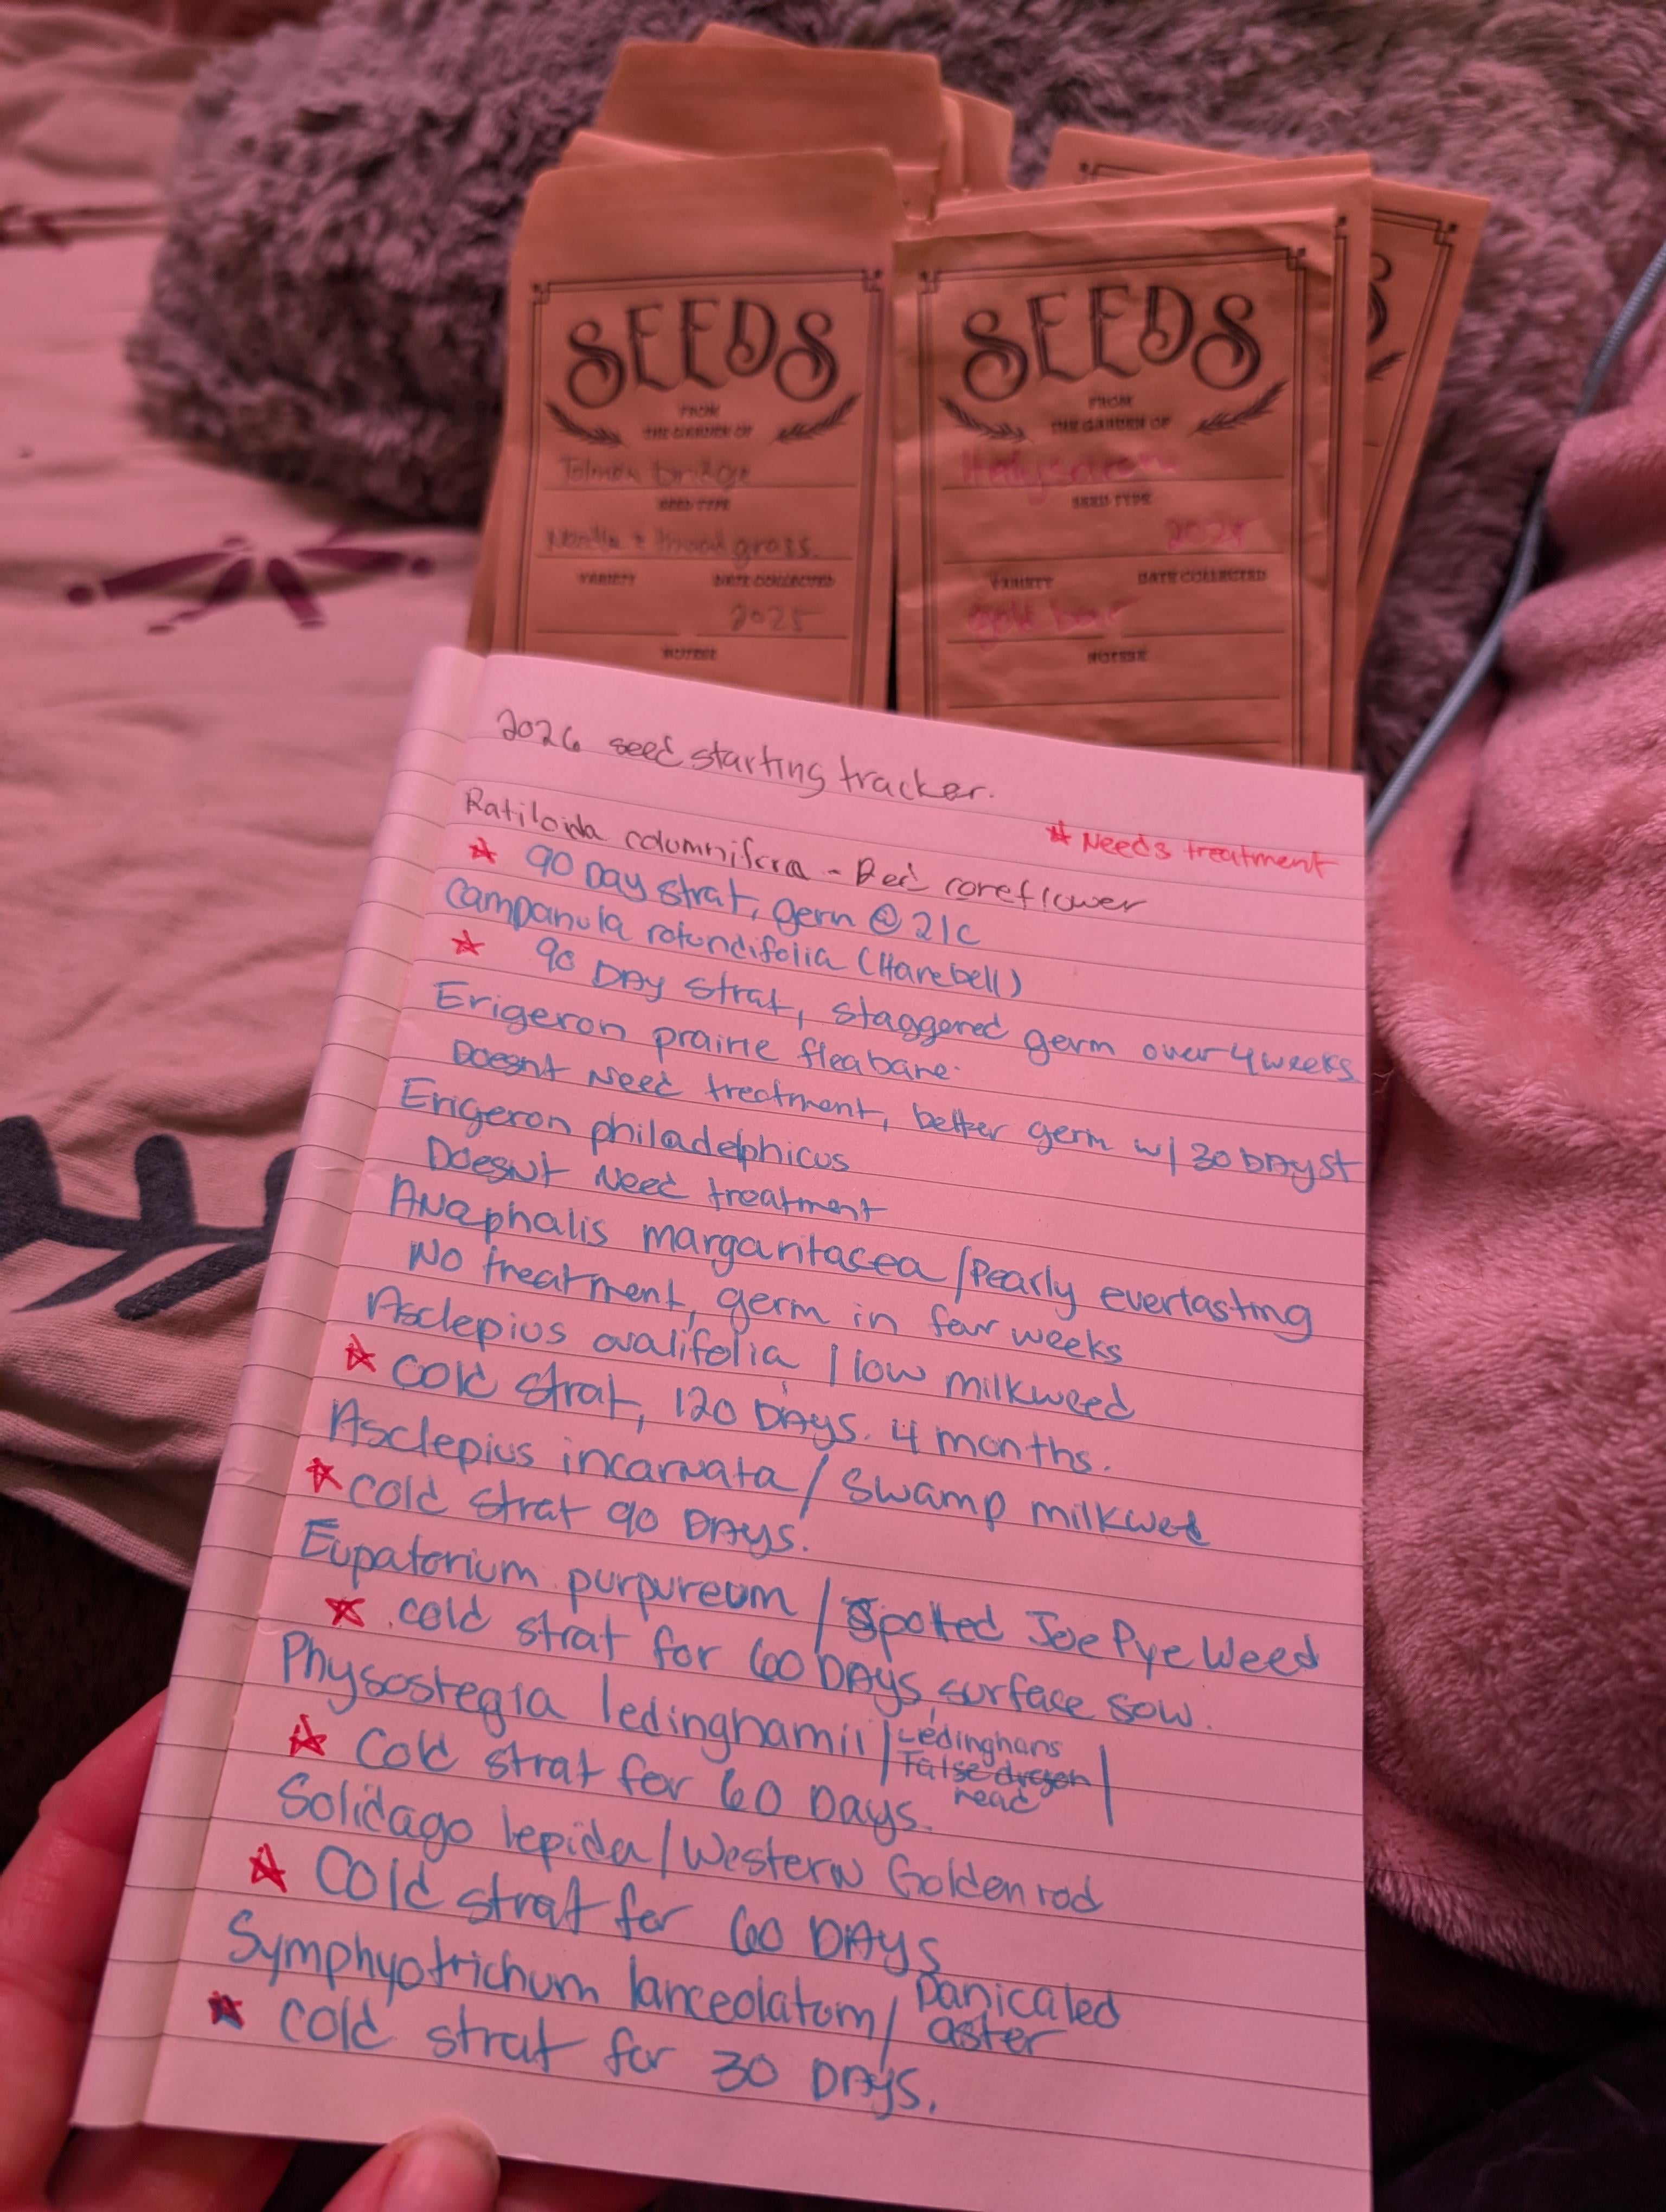 SEEDS
FROM
THE GARDEN OF
Tolman bridge
SEED TYPE
grass
VARIETY DATE COLLECTED
2025
NOTES:
SEEDS
FROM
THE GARDEN OF
Hedysarum
SEED TYPE
VARIETY DATE COLLECTED
gold bar
NOTES:
2026 seed starting tracker.
☆ Needs treatment
Ratiloida columnifera - Red coneflower
☆ 90 Day strat, germ @ 21c
Campanula rotundifolia (Harebell)
☆ 90 DAY strat, staggered germ over 4 weeks
Erigeron prairie fleabane.
Doesnt Need treatment, better germ w/ 30 DAY St
Erigeron philadelphicus
Doesnt Need treatment
Anaphalis margaritacea / Pearly everlasting
No treatment, germ in few weeks
Asclepius ovalifolia / low milkweed
☆ Cold strat, 120 DAYS. 4 months.
Asclepius incarnata / Swamp milkwed
☆ Cold strat 90 DAYS.
Eupatorium purpureum / Spotted Joe Pye Weed
☆ cold strat for 60 DAYS, surface sow.
Physostegia ledinghamii / Ledinghans
False dragon
head
☆ Cold strat for 60 Days.
Solidago lepida / Western Goldenrod
☆ Cold strat for 60 DAYS
Symphyotrichum lanceolatum / Panicaled
aster
☆ Cold strat for 30 DAYS.